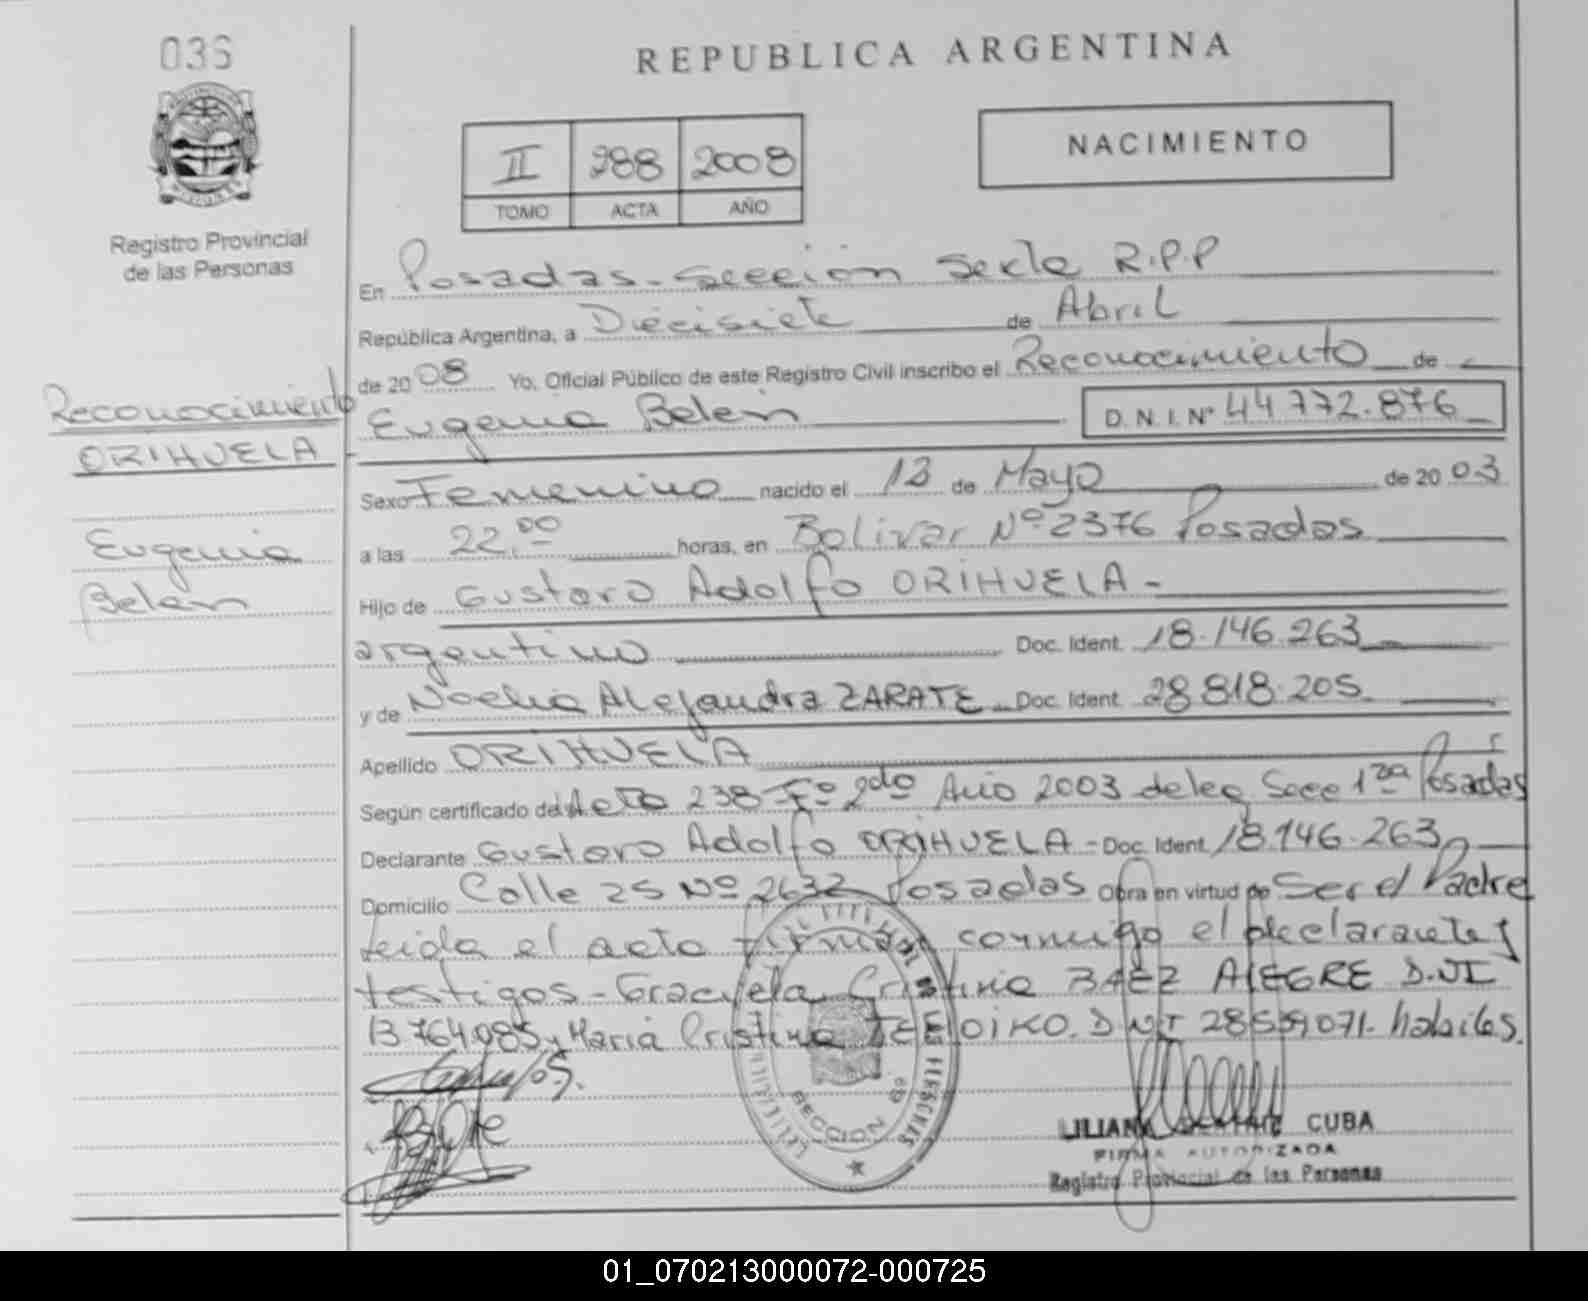 036
REPUBLICA ARGENTINA
NACIMIENTO
II 288 2008
TOMO ACTA AÑO
Registro Provincial
de las Personas
En Posadas - Seccion Sexta R.P.P
República Argentina, a Diecisiete de Abril
de 2008 Yo, Oficial Público de este Registro Civil inscribo el Reconocimiento de
Eugenia Belen D.N.I.Nº 44 772.876
Reconocimiento
ORIHUELA
Eugenia
Belen
Sexo Femenino nacido el 13 de Mayo de 2003
a las 22.00 horas, en Bolivar Nº 2376 Posadas
Hijo de Gustavo Adolfo ORIHUELA -
argentino Doc. Ident. 18.146.263
y de Noelia Alejandra ZARATE Doc. Ident. 28 818.205
Apellido ORIHUELA
Según certificado de Acta 238 Tº 2do Año 2003 deleg Secc 1ra Posadas
Declarante Gustavo Adolfo ORIHUELA - Doc. Ident. 18.146.263
Domicilio Calle 25 Nº 2632 Posadas Obra en virtud de Ser el Padre
leida el acta firman conmigo el declarante y
testigos - Graciela Cristina BAEZ ALEGRE D.NI
13 764.085 y Maria Cristina DNI 28559071 - habiles.
SECCION 6ª
LILIANA BEATRIZ CUBA
FIRMA AUTORIZADA
Registro Provincial de las Personas
01_070213000072-000725